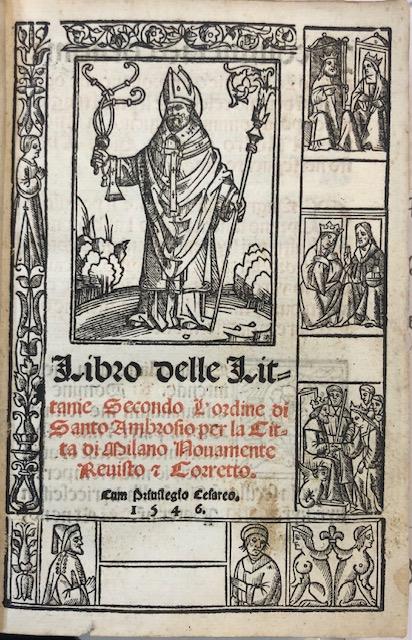 Libro delle Lit-
tanie Secondo L'ordine di
Santo Ambrosio per la Cit-
ta di Milano Novamente
Revisto ⁊ Corretto.
Cum Privilegio Cesareo.
1546.